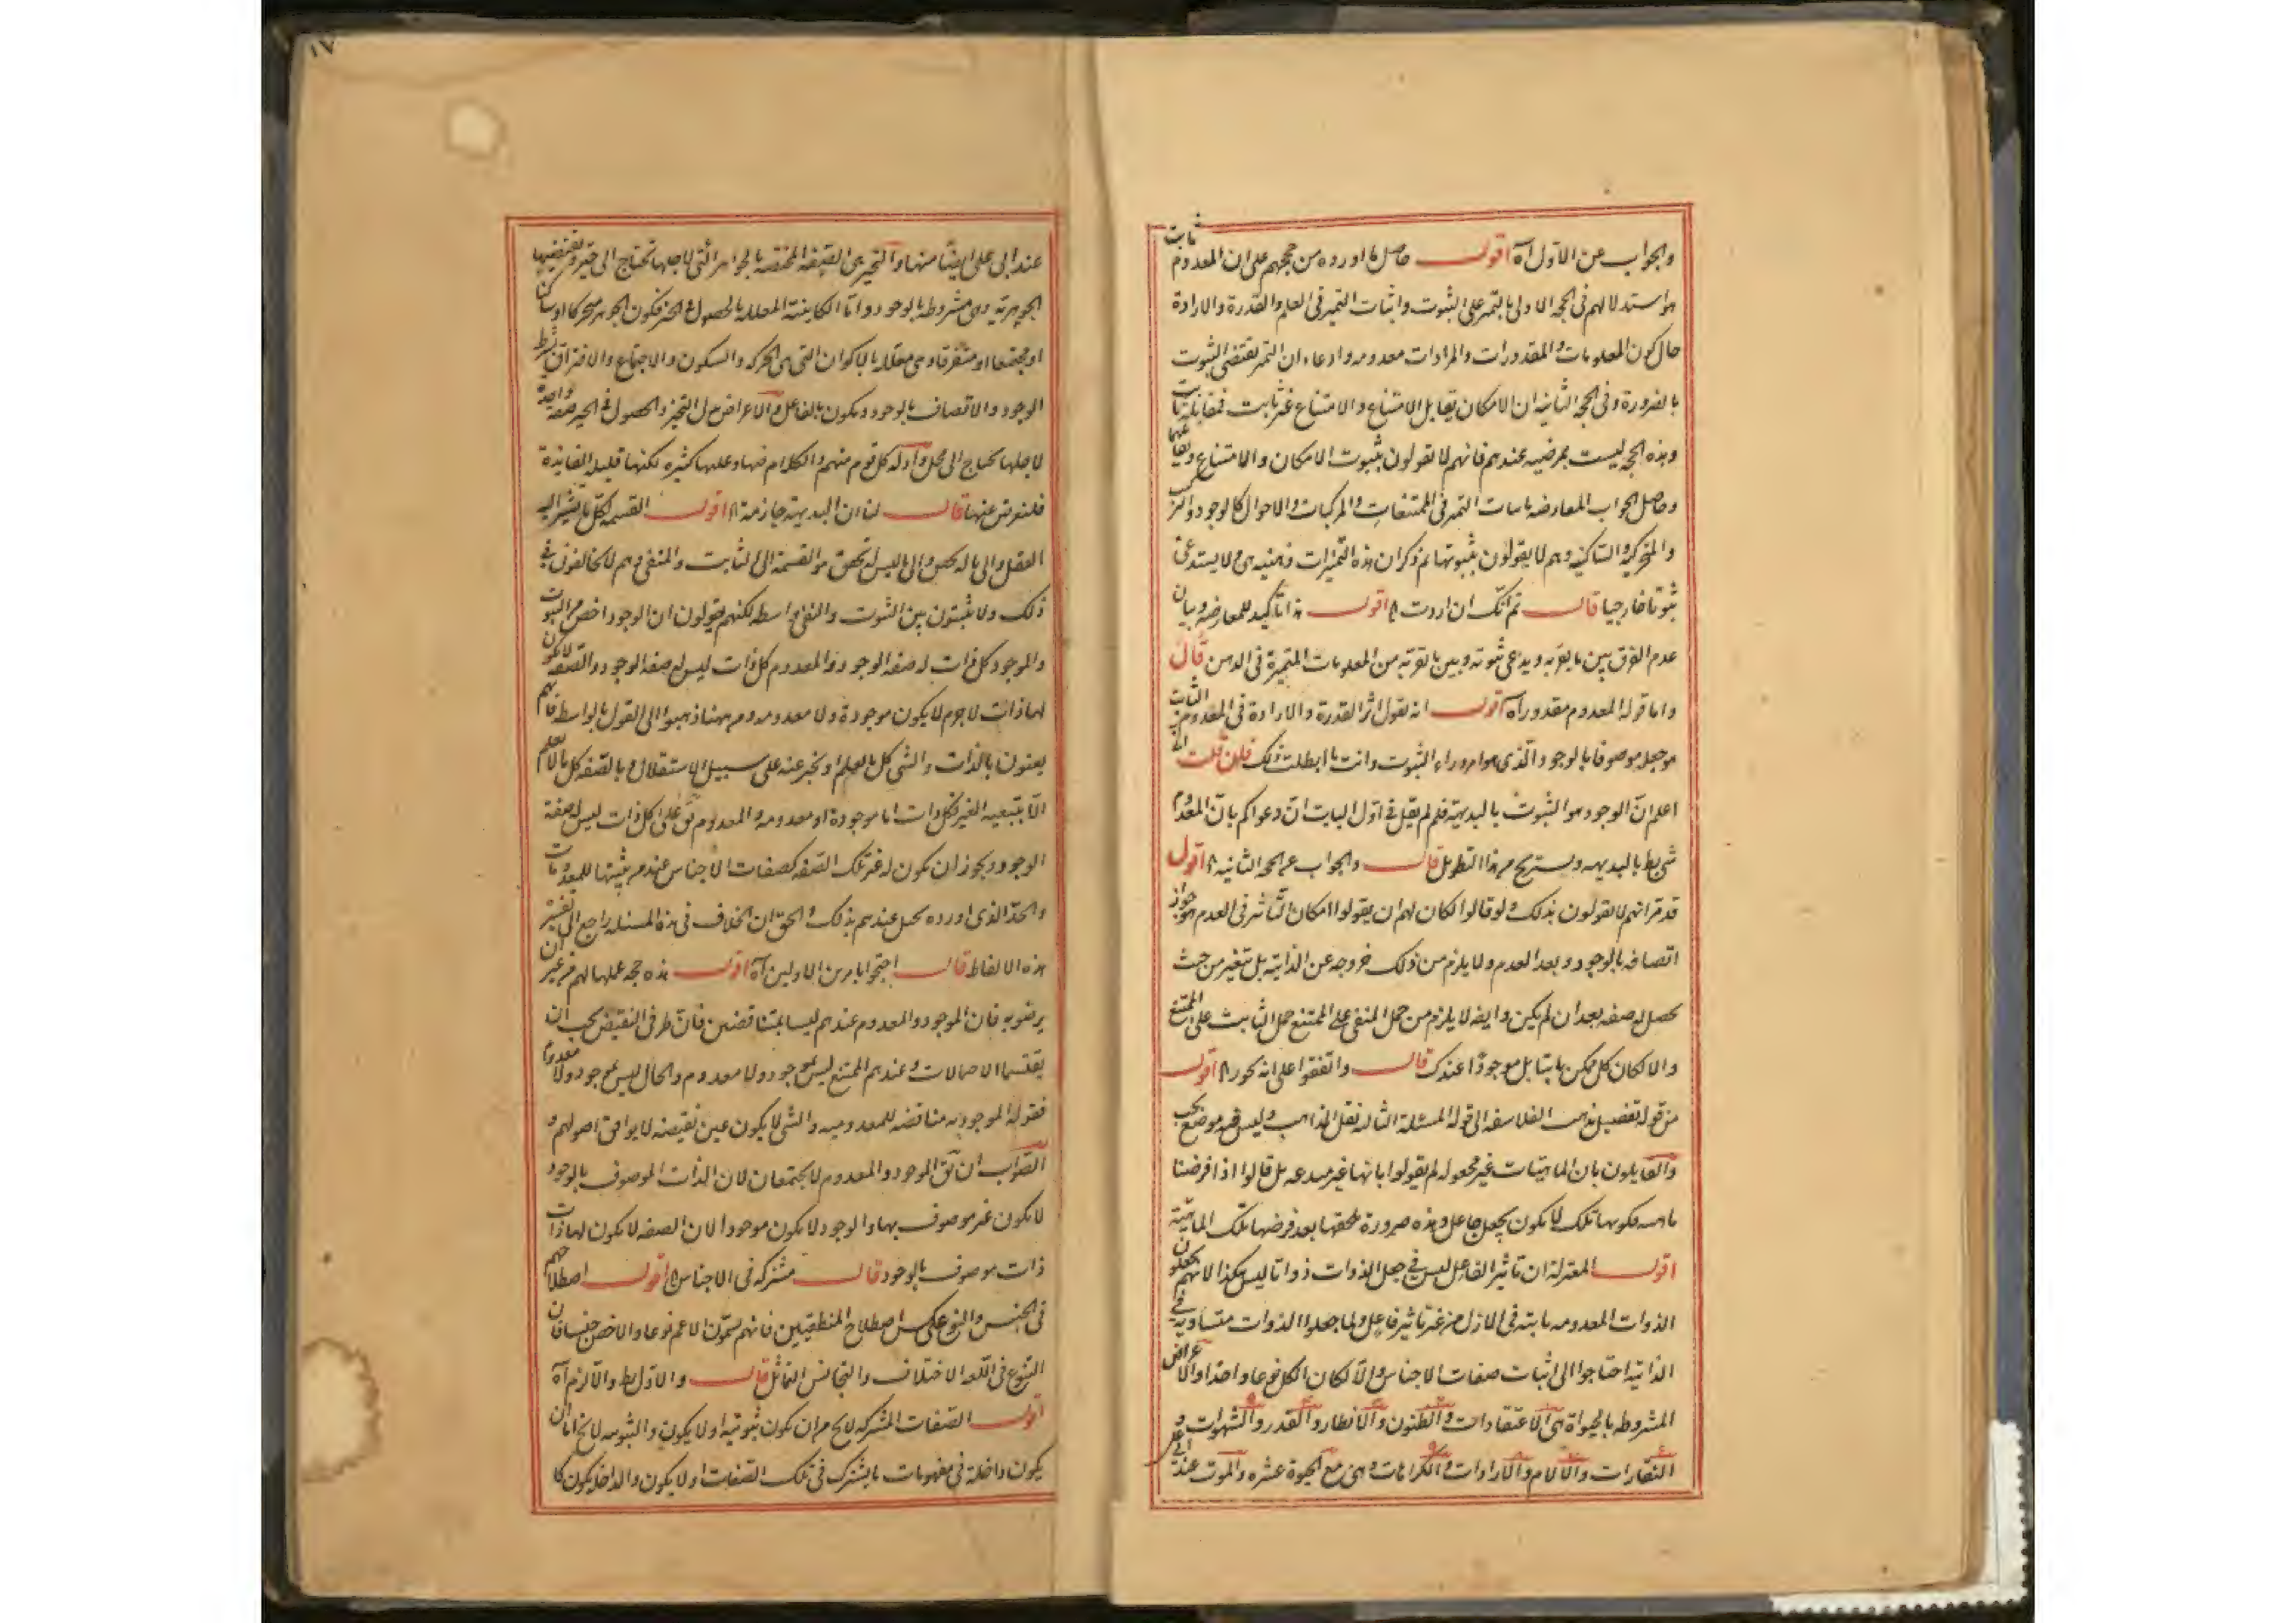 والجواب عن الاول آه اقول حاصل ما اورده من حججهم على ان المعدوم ثابت
هو استدلالهم فى الحجه الاولى بالتميز على الثبوت واثبات التميز فى العلم والقدرة والارادة
حال كون المعلومات والمقدورات والمرادات معدومه وادعاء ان التميز يقتضى الثبوت
بالضرورة وفى الحجه الثانيه ان الامكان يقابل الامتناع والامتناع غير ثابت فمقابله ثابت
وهذه الحجه ليست بمرضيه عندهم فانهم لا يقولون بثبوت الامكان والامتناع
وحاصل الجواب المعارضه باثبات التميز فى الممتنعات والمركبات والاحوال كالوجود والتركيب
والمتحركية والساكنية وهم لا يقولون بثبوتها ثم ذكر ان هذه التميزات ذهنيه وهى لا يستدعى
ثبوتا خارجيا قال ثم انك ان اردت اه اقول هذا تاكيد للمعارضه وبيان
عدم الفرق بين ما يقر به ويدعى ثبوته وبين ما نقر به من المعلومات المتميزة فى الذهن قال
واما قوله المعدوم مقدور آه اقول انه يقول اثر القدرة والارادة فى المعدوم الثابت
هو جعله موصوفا بالوجود الذى هو امر وراء الثبوت وانت ما ابطلت ذلك فان قلت انى
اعلم ان الوجود هو الثبوت بالبديهة فلم لم يقل فى اول الباب ان دعواكم بان المعدوم
شئ بط بالبديهه ويستريح من هذا التطويل قال والجواب عن الحجه الثانيه اه اقول
قد مر انهم لا يقولون بذلك ولو قالوا لكان لهم ان يقولوا امكان التاثير فى العدم هو جواز
اتصافه بالوجود وبعد العدم ولا يلزم من ذلك خروجه عن الذاتية بل تغير من حيث
تحصل له صفه بعد ان لم يكن وايضه لا يلزم من حمل المنفى على الممتنع حمل الثابت على الممتنع
والا لكان كل ممكن ثابتا بل موجودا عندك قال واتفقوا على انه اه اقول
من قوله تفصيل مذهب الفلاسفه الى قوله المسئلة الثالثه نقل المذاهب وليس فيه موضع بحث
والقايلون بان الماهيات غير مجعوله لم يقولوا بانها غير مبدعه بل قالوا اذا فرضنا
ماهيه فكونها تلك لا يكون بجعل جاعل وهذه ضرورة تلحقها بعد فرضها تلك الماهية
اقول المعتزلة ان تاثير الفاعل ليس فى جعل الذوات ذواتا ليس هكذا لانهم يجعلون
الذوات المعدومه ثابته فى الازل من غير تاثير فاعل ولما جعلوا الذوات متساوية فى
الذاتية احتاجوا الى اثبات صفات الاجناس والا لكان الكل نوعا واحدا والاعراض
المشروطه بالحيواة هى الاعتقادات والظنون والانظار والقدر والشهوات و
النفارات والالام والارادات والكراهات وهى مع الحيوة عشره والموت عند ابى على
عند ابى على ايضا منها والتحيز هى الصفه المختصه بالجواهر التى لاجلها تحتاج الى حيز وتقتضيها
الجوهرية وهى مشروطه بالوجود واما الكاينية المعلله بالحصول فى الحيز فكون الجوهر متحركا او ساكنا
او مجتمعا او متفرقا وهى معلله بالاكوان التى هى الحركه والسكون والاجتماع والافتراق بشرط
الوجود والاتصاف بالوجود يكون بالفاعل والاعراض بدل التحيز والحصول فى الحيز صفة واحدة
لاجلها تحتاج الى محل وادله كل قوم منهم والكلام فيها وعليها كثيره لكنها قليله الفايدة
فلنعرض عنها قال لنا ان البديهة جازمة اه اقول القسمه لكل ما يشير اليه
العقل الى ما له تحقق والى ما ليس له تحقق هو القسمة الى الثابت والمنفى وهم لا يخالفون فى
ذلك ولا يثبتون بين الثبوت والنفى واسطه لكنهم يقولون ان الوجود اخص من الثبوت
والموجود كل ذات له صفه الوجود والمعدوم كل ذات ليس له صفه الوجود والصفه لا يكون
لها ذات لا جرم لا يكون موجودة ولا معدومه ومن ههنا ذهبوا الى القول بالواسطه فانهم
يعنون بالذات والشى كل ما يعلم او يخبر عنه على سبيل الاستقلال وبالصفه كل ما لا يعلم
الا بتبعيه الغير فكل ذات اما موجودة او معدومه والمعدوم يق على كل ذات ليس له صفة
الوجود ويجوز ان يكون له غير تلك الصفه كصفات الاجناس عند من يثبتها للمعدومات
والحد الذى اورده مختل عندهم بذلك والحق ان الخلاف فى هذه المسئله راجع الى تفسير
هذه الالفاظ قال احتجوا بامرين الاولين آه اقول هذه حجه عملها لهم من غير ان
يرضوا به فان الموجود والمعدوم عندهم ليسا بمتناقضين فان طرفى النقيض يجب ان
يقتسما الاحتمالات وعندهم الممتنع ليس بموجود ولا معدوم والحال ليس بموجود ولا معدوم
فقوله الموجوديه مناقضه للمعدوميه والشى لا يكون عين نقيضه لا يوافق اصولهم و
الصواب ان يق الموجود والمعدوم لا يجتمعان لان الذات الموصوف بالوجود
لا يكون غير موصوف بها والوجود لا يكون موجودا لان الصفه لا يكون لها ذات
ذات موصوف بالوجود قال مشتركه فى الاجناس اه اقول اصطلاحهم
فى الجنس والنوع عكس اصطلاح المنطقيين فانهم يسمون الاعم نوعا والاخص جنسا فان
التنوع فى اللغه الاختلاف والتجانس التماثل قال والاول بط والا لزم آه
اقول الصفات المشتركه لا يخ من ان يكون ثبوتية او لا يكون والثبوتيه لا يخ اما ان
يكون داخلة فى مفهومات ما يشترك فى تلك الصفات او لا يكون والداخله يكون كا
١٧